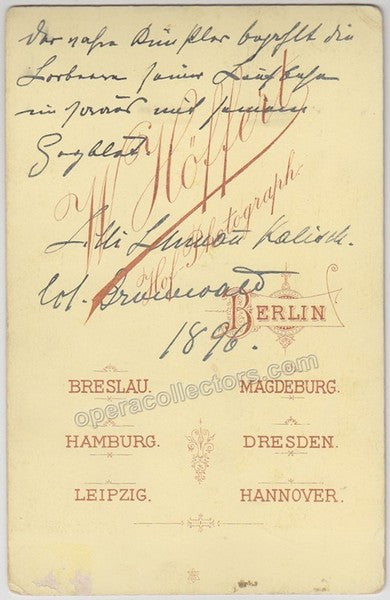 Der wahre Künstler bezahlt die
Lorbeeren seiner Laufbahn
nur mit seinem
Herzblut.
W. Höffert
Hof-Photograph.
Lilli Lehmann Kalisch.
Col. Grunewald
1896.
BERLIN
BRESLAU. MAGDEBURG.
operacollectors.com
HAMBURG. DRESDEN.
LEIPZIG. HANNOVER.